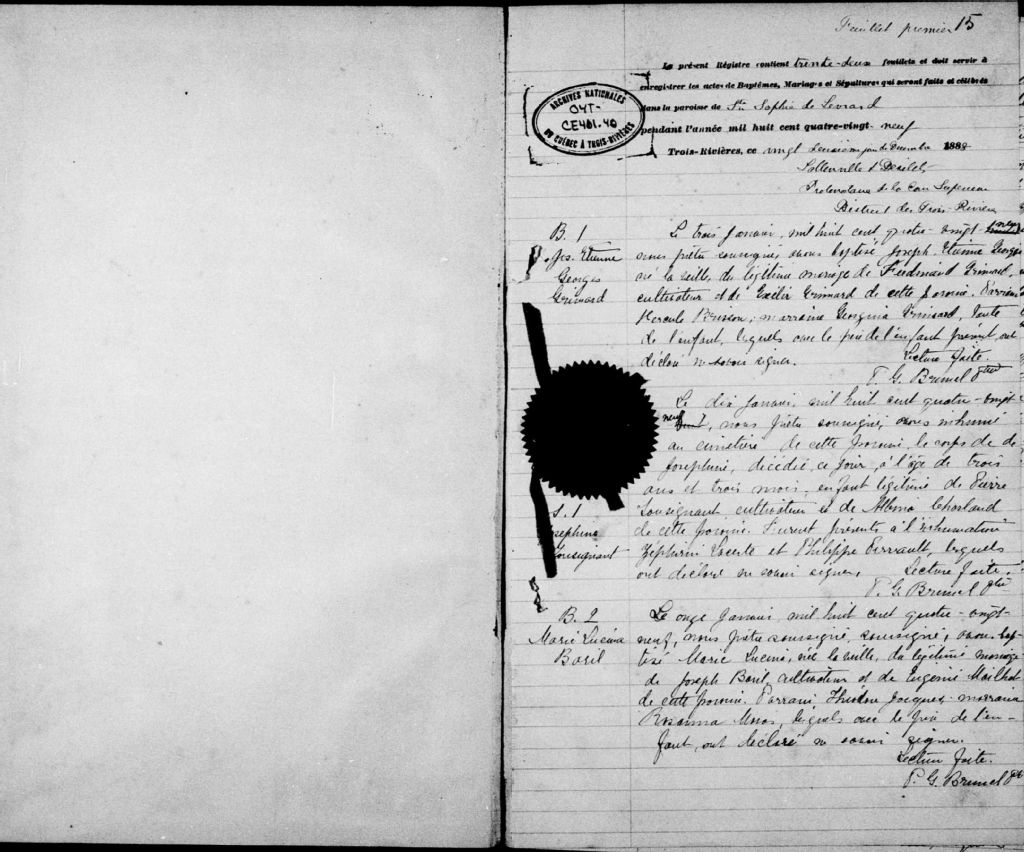 Feuillet premier 15
Le présent Régistre contient trente-deux feuillets et doit servir à
enregistrer les actes de Baptêmes, Mariages et Sépultures qui seront faits et célébrés
dans la paroisse de Ste Sophie de Levrard
pendant l'année mil huit cent quatre-vingt-neuf
Trois-Rivières, ce vingt jour de Décembre 1888
ARCHIVES NATIONALES
DU QUÉBEC À TROIS-RIVIÈRES
CE401.40
Désilets
Protonotaire de la Cour Supérieure
District des Trois-Rivières
B. 1
Jos. Etienne
Georges
Grimard
Le trois Janvier, mil huit cent quatre-vingt-neuf
nous prêtre soussigné, avons baptisé Joseph Etienne Georges
né la veille, du légitime mariage de Ferdinand Grimard,
cultivateur et de Exélia Grimard de cette paroisse. Parrain
Hercule Brisson; marraine Georgina Grimard, tante
de l'enfant, lesquels avec le père de l'enfant présent, ont
déclaré ne savoir signer. Lecture faite.
T. G. Brunel Ptre
S. 1
Josephine
Tousignant
Le dix Janvier, mil huit cent quatre-vingt
neuf, nous prêtre soussigné, avons inhumé
au cimetière de cette paroisse, le corps de
Josephine, décédée, ce jour, à l'âge de trois
ans et trois mois, enfant légitime de Pierre
Tousignant cultivateur et de Albina Charland
de cette paroisse. Furent présents à l'inhumation
Zéphirin et Philippe Perrault, lesquels
ont déclaré ne savoir signer. Lecture faite.
T. G. Brunel Ptre
B. 2
Marie Lucina
Baril
Le onze Janvier mil huit cent quatre-vingt-
neuf, nous prêtre soussigné, soussigné, avons bap-
tisé Marie Lucina, née la veille, du légitime mariage
de Joseph Baril, cultivateur et de Eugénie Mailhot
de cette paroisse. Parrain, Théodore Jacques, marraine
Rosanna, lesquels avec le père de l'en-
fant, ont déclaré ne savoir signer.
Lecture faite.
T. G. Brunel Ptre